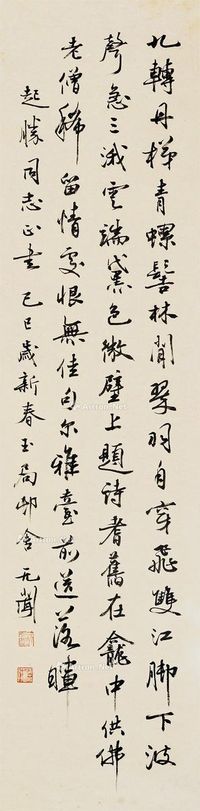 九轉丹梯青螺髻林間翠羽自穿飛雙江腳下波
聲急三峨雲端黛色微壁上題詩耆舊在龕中供佛
老僧稀留情恨無佳句尔雅臺前送落暉
起勝同志正 己巳歲新春玉局邨舍无聞